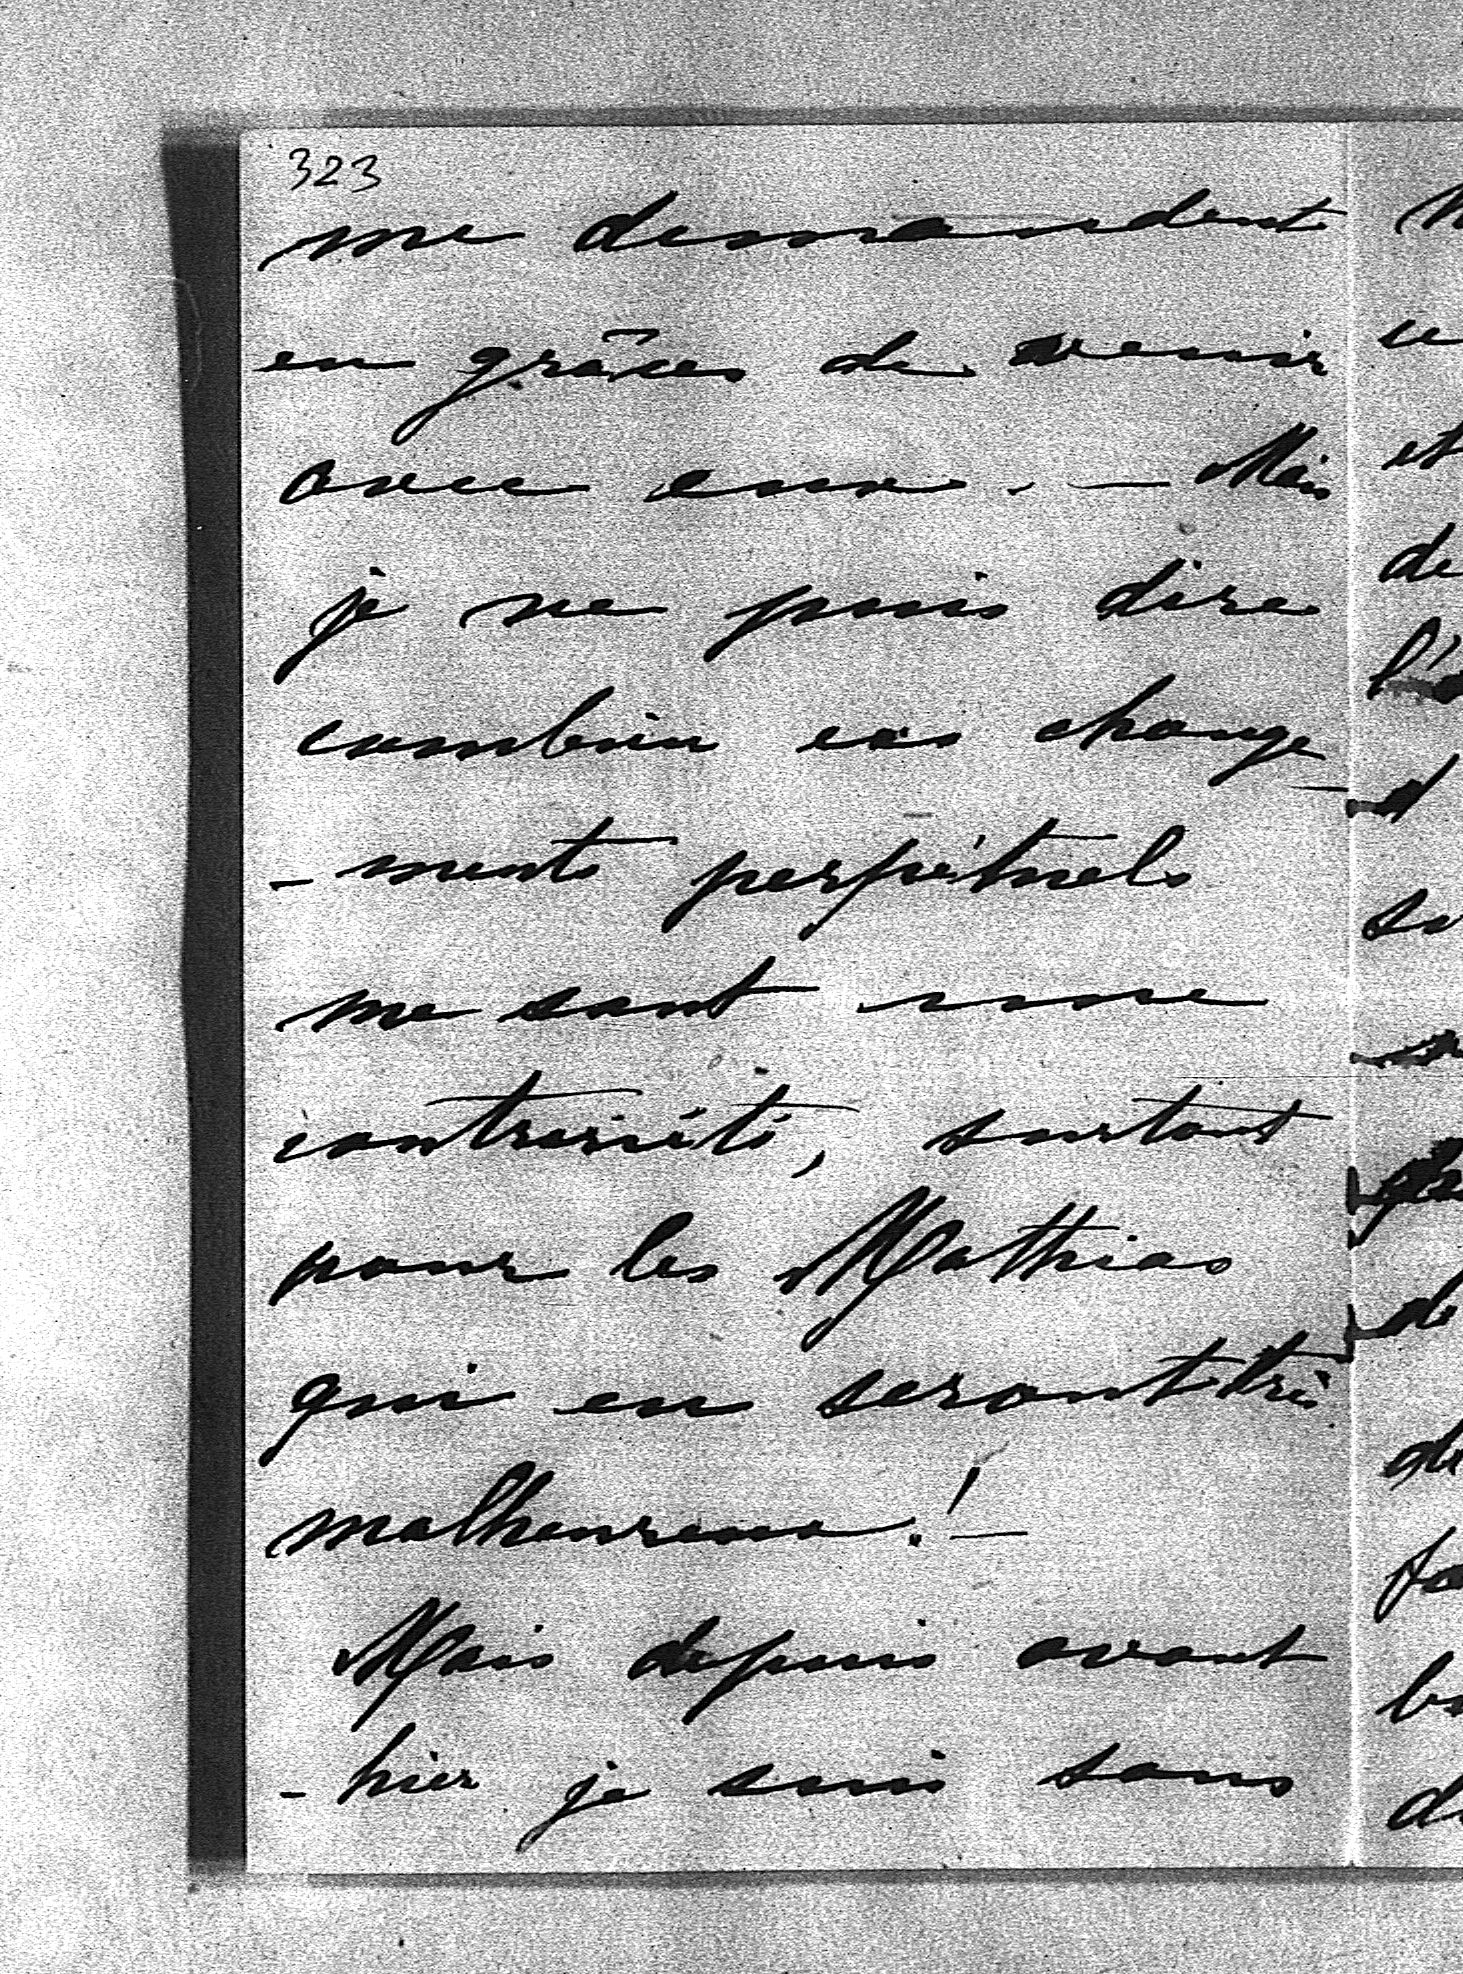 323
me demandent
en grâces de venir
avec eux. — Mais
je ne puis dire
combien ces change
- ments perpétuels
me sont une
contrariété, surtout
pour les Mathias
qui en seront très
malheureux ! —
Mais depuis avant
- hier je suis sans